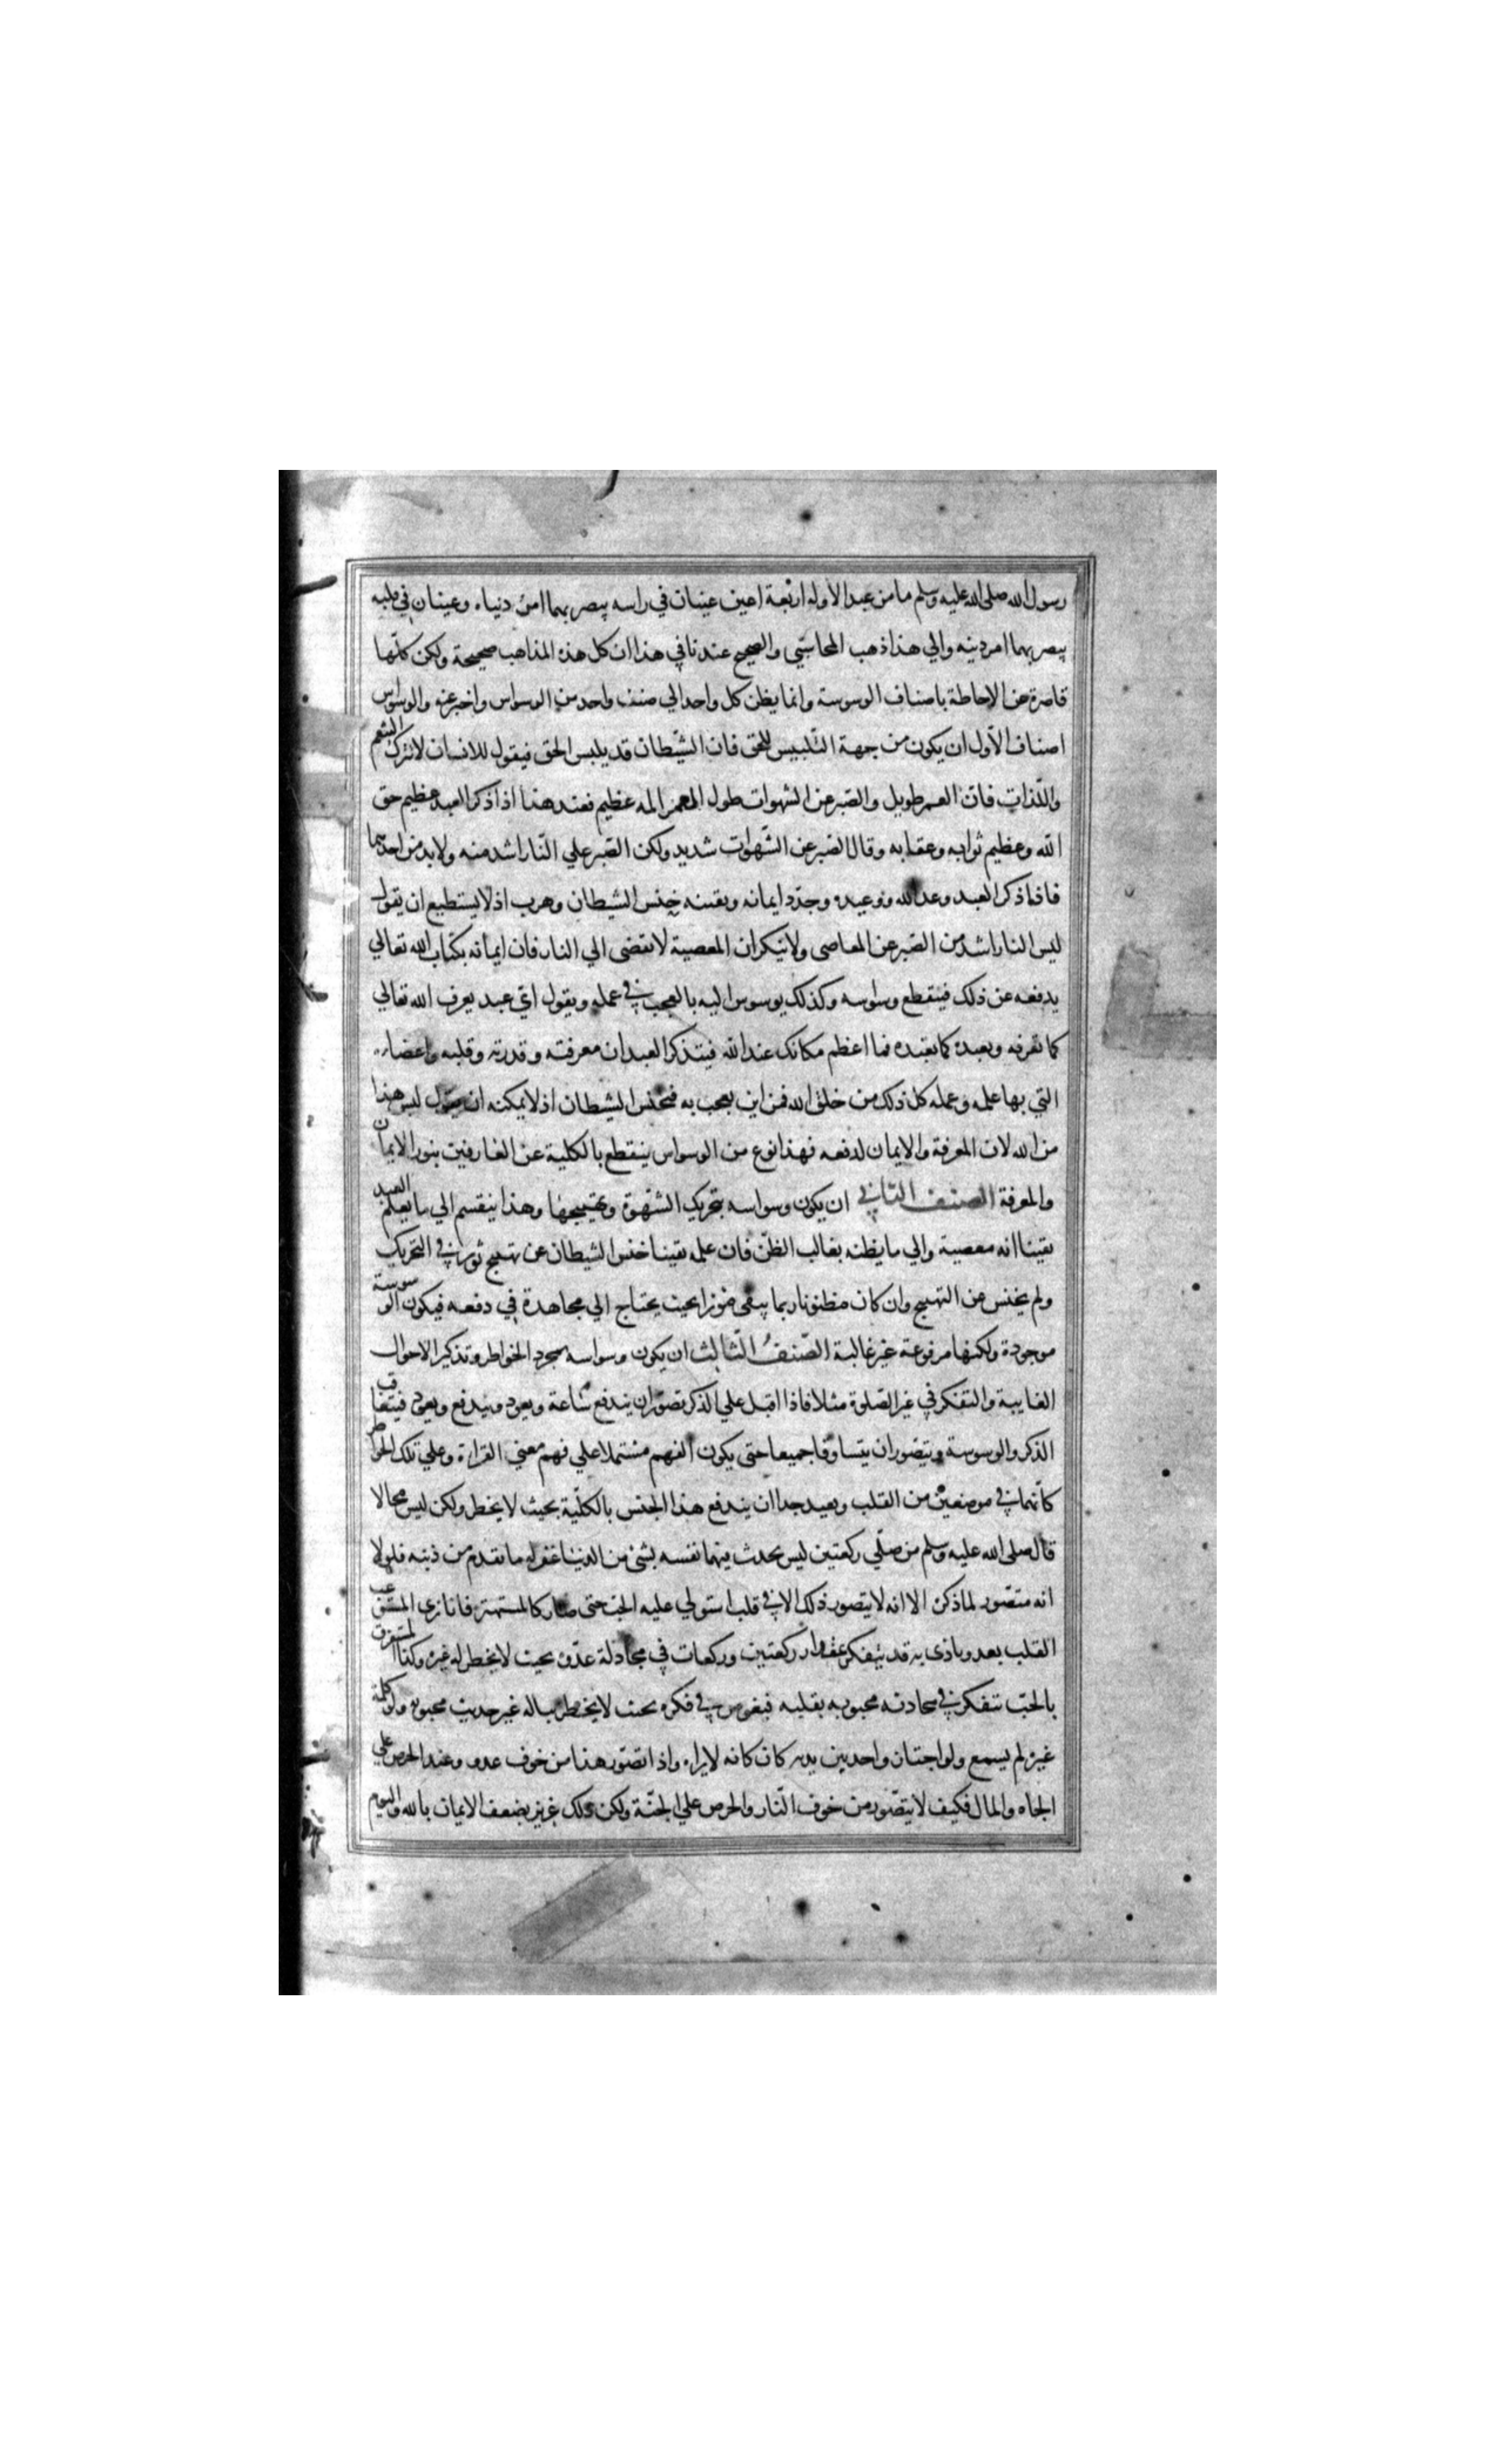 رسول الله صلى الله عليه وسلم ما من عبد الا وله اربعة اعين عينان في راسه يبصر بهما امر دنياه وعينان في قلبه
يبصر بهما امر دينه والي هذا ذهب المحاسبي والصحيح عندنا في هذا ان كل هذه المذاهب صحيحة ولكن كلها
قاصرة عن الاحاطة باصناف الوسوسة وانما يظن كل واحد الي صنف واحد من الوسواس واخبر عنه والوسواس
اصناف الأول ان يكون من جهة التّلبيس للحق فان الشّيطان قد يلبس الحق فيقول للانسان لا تترك التنعم
واللّذات فان العمر طويل والصّبر عن الشهوات طول العمر المه عظيم فعند هذا اذا ذكر العبد عظيم حق
الله وعظيم ثوابه وعقابه وقال الصّبر عن الشّهوات شديد ولكن الصّبر علي النّار اشد منه ولا بد من احدهما
فاذا ذكر العبد وعد الله ووعيده وجدّد ايمانه ويقينه خنس الشيطان وهرب اذ لا يستطيع ان يقول
ليس النار اشد من الصّبر عن المعاصي ولا ينكر ان المعصية لا تفضى الي النار فان ايمانه بكتاب الله تعالي
يدفعه عن ذلك فينقطع وسواسه وكذلك يوسوس اليه بالعجب في عمله ويقول اي عبد يعرف الله تعالي
كما تعرفه ويعبده كما تعبده فما اعظم مكانك عند الله فيتذكر العبد ان معرفته وقدرته وقلبه واعضاءه
التي بها علمه وعمله كل ذلك من خلق الله فمن اين يعجب به فيخنس الشيطان اذ لا يمكنه ان يقول ليس هذا
من الله لان المعرفة والايمان لدفعه فهذا نوع من الوسواس ينقطع بالكلية عن العارفين بنور الايمان
والمعرفة الصنف الثاني ان يكون وسواسه بتحريك الشّهوة وتهييجها وهذا ينقسم الي ما يعلم العبد
يقينا انه معصية والي ما يظنه بغالب الظنّ فان علمه يقينا خنس الشيطان عن تهييج ثور في التحريك
ولم يخنس عن التهييج وان كان مظنونا ربما يبقي بحيث يحتاج الي مجاهدة في دفعه فيكون الوسوسة
موجودة ولكنها مرفوعة غير غالبة الصّنفُ الثّالث ان يكون وسواسه بمجرد الخواطر وتذكير الاحوال
الغايبة والتفكر في غير الصّلوة مثلا فاذا اقبل علي الذكر تصوّر ان يندفع ساعة ويعود ويندفع ويعود فيتعاقب
الذكر والوسوسة ويتصور ان يتساوقا جميعا حتى يكون الفهم مشتملا علي فهم معني القراءة وعلي تلك الخواطر
كأنهما في موضعين من القلب وبعيد جدا ان يندفع هذا الجنس بالكلّية بحيث لا يخطر ولكن ليس محالا
قال صلى الله عليه وسلم من صلّي ركعتين ليس يحدث فيهما نفسه بشئ من الدنيا غفر له ما تقدم من ذنبه فلولا
انه متصّور لما ذكره الا انه لا يتصور ذلك الا في قلب استولي عليه الحبّ حتى صار كالمستهتر فانا نري المستوعب
القلب بعدو باذى به قد يتفكر مقدار ركعتين وركعات في مجادلة عدّوه بحيث لا يخطر له غيره وكذا المستغرق
بالحبّ يتفكر في محادثه محبوبه بقلبه فيغوص في فكره بحيث لا يخطر بباله غير حديث محبوبه ولو كلمه
غيره لم يسمع ولو اجتاز واحد بين يديه كان كانه لا يراه واذا تصوّر هذا من خوف عدو وعند الحرص علي
الجاه والمال فكيف لا يتصّور من خوف النّار والحرص علي الجنّة ولكن ذلك عزيز بضعف الايمان بالله واليوم